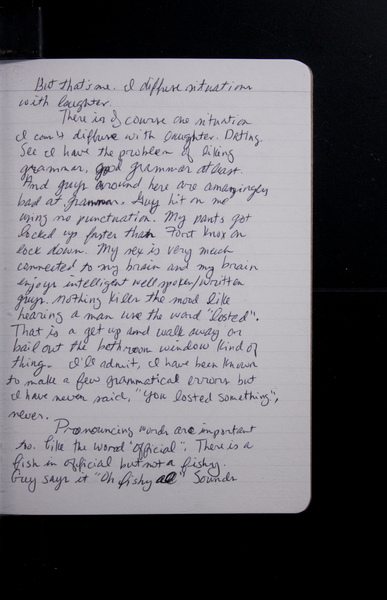 But that's me. I diffuse situations
with laughter.
There is of course one situation
I can't diffuse with laughter. Dating.
See I have the problem of liking
grammar, good grammar at least.
And guys around here are amazingly
bad at grammar. Guy hit on me
using no punctuation. My pants got
locked up faster than Fort Knox on
lock down. My sex is very much
connected to my brain and my brain
enjoys intelligent well spoken/written
guys. Nothing killer the mood like
hearing a man use the word "losted".
That is a get up and walk away or
bail out the bathroom window kind of
thing. I'll admit, I have been known
to make a few grammatical errors but
I have never said, "You losted something",
never.
Pronouncing words are important
too. Like the word "official". There is a
fish in official but not a fishy.
Guy says it "Oh fishy al" Sounds